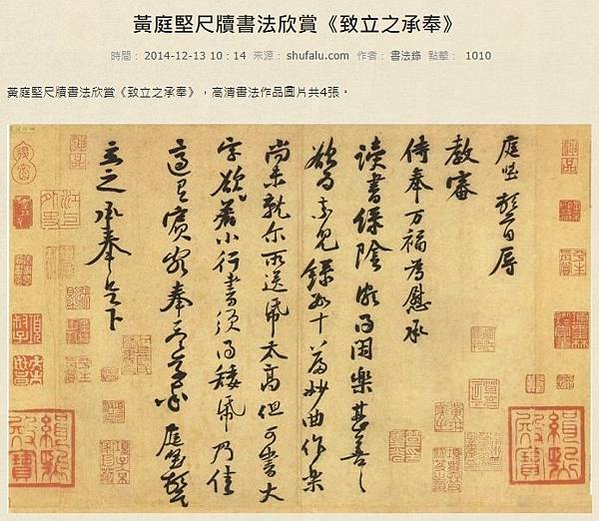 黃庭堅尺牘書法欣賞《致立之承奉》
時間： 2014-12-13 10：14 來源： shufalu.com 作者： 書法錄 點擊： 1010
黃庭堅尺牘書法欣賞《致立之承奉》，高清書法作品圖片共4張。
庭堅頓首辱
教審
侍奉万福為慰承
讀書綠陰頗得閑樂甚善
欲為素兒錄數十篇妙曲作樂
尚未就尔所送紙太高但可書大
字欲著小行書須得矮紙乃佳
適有賓客奉答草草庭堅頓首
立之承奉足下